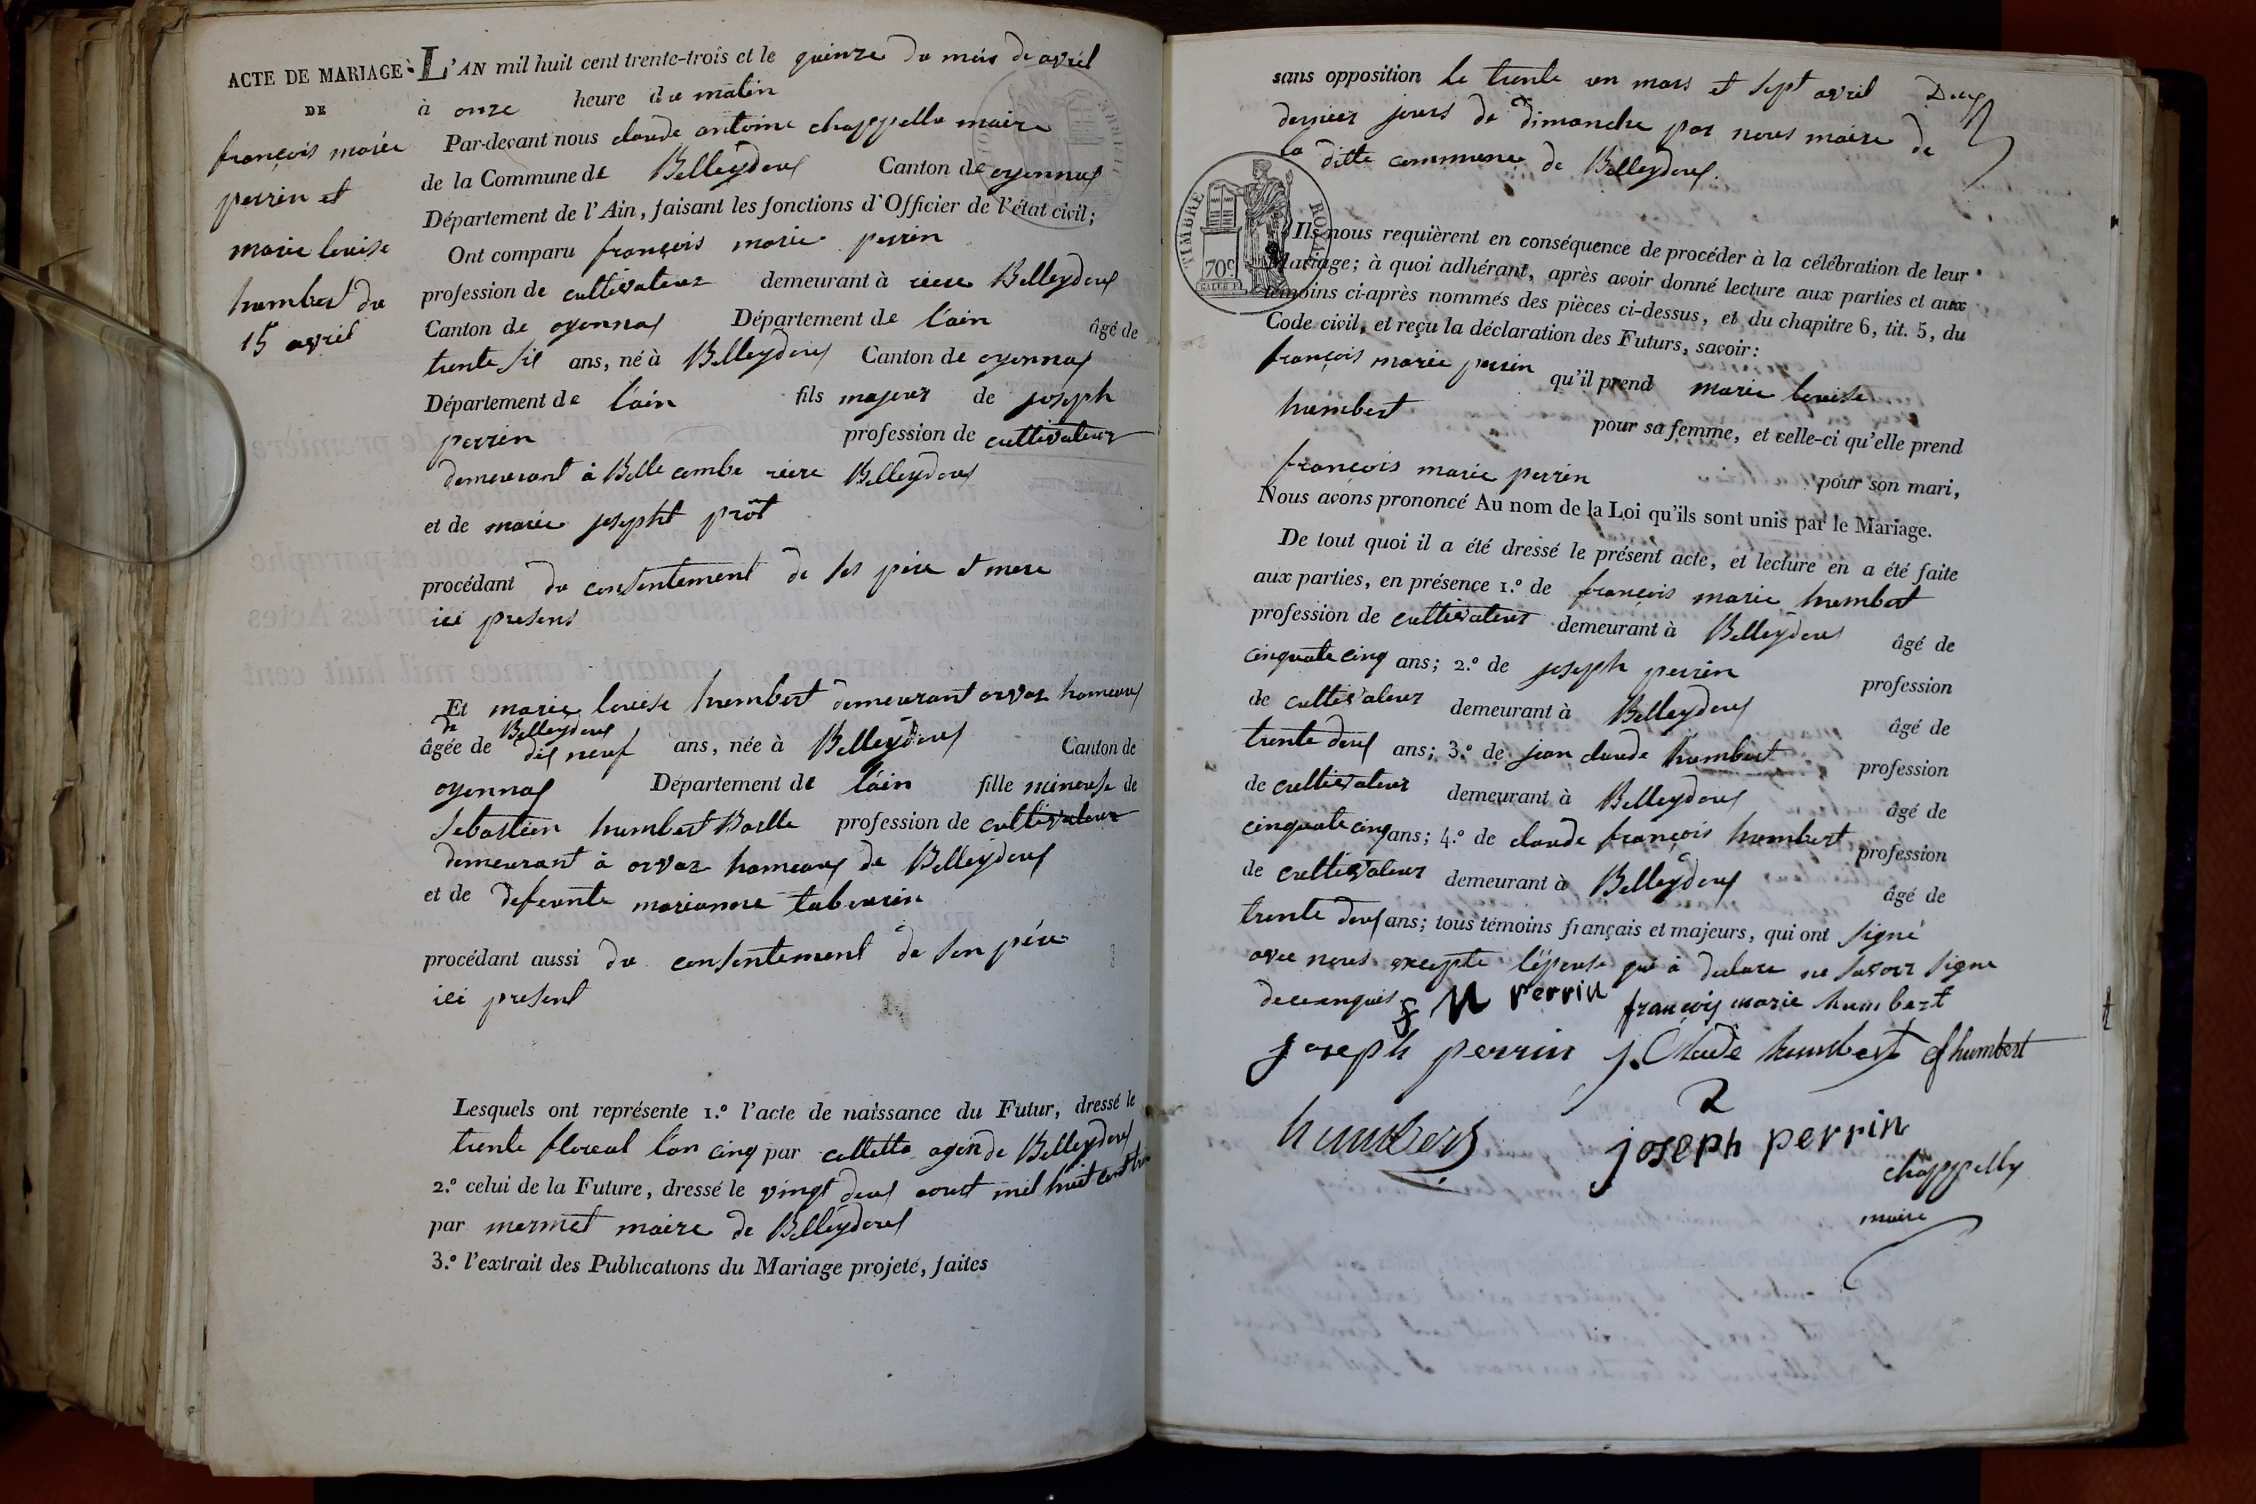 ACTE DE MARIAGE
DE
françois marie
perrin et
marie louise
humbert du
15 avril
L'AN mil huit cent trente-trois et le quinze du mois de avril
à onze heure du matin
Par-devant nous claude antoine chappellu maire
de la Commune de Belleydoux Canton de oyonnax
Département de l'Ain, faisant les fonctions d'Officier de l'état civil;
Ont comparu françois marie perrin
profession de cultivateur demeurant à riere Belleydoux
Canton de oyonnax Département de l'ain âgé de
trente six ans, né à Belleydoux Canton de oyonnax
Département de l'ain fils majeur de joseph
perrin profession de cultivateur
demeurant à Belle combe riere Belleydoux
et de marie josepht prôt
procédant du consentement de ses père et mere
ici presens
Et marie louise humbert demeurant orvaz hameaux
de Belleydoux
âgée de dix neuf ans, née à Belleydoux Canton de
oyonnax Département de l'ain fille mineuse de
Sebastien humbert Baille profession de cultivateur
demeurant à orvaz hameaux de Belleydoux
et de defeunte marianne tabourin
procédant aussi du consentement de son père
ici present
Lesquels ont représente 1.º l'acte de naissance du Futur, dressé le
trente floreal l'an cinq par colletta agen de Belleydoux
2.º celui de la Future, dressé le vingt deux aout mil huit cent
par mermet maire de Belleydoux
3.º l'extrait des Publications du Mariage projeté, faites
sans opposition le trente un mars et sept avril Deux
dernier jours de dimanche par nous maire de
la ditte commune de Belleydoux.
TIMBRE ROYAL
70c
Ils nous requièrent en conséquence de procéder à la célébration de leur
Mariage; à quoi adhérant, après avoir donné lecture aux parties et aux
témoins ci-après nommés des pièces ci-dessus, et du chapitre 6, tit. 5, du
Code civil, et reçu la déclaration des Futurs, savoir:
françois marie perrin qu'il prend marie louise
humbert pour sa femme, et celle-ci qu'elle prend
françois marie perrin pour son mari,
Nous avons prononcé Au nom de la Loi qu'ils sont unis par le Mariage.
De tout quoi il a été dressé le présent acte, et lecture en a été faite
aux parties, en présence 1.º de françois marie humbert
profession de cultivateur demeurant à Belleydoux âgé de
cinquate cinq ans; 2.º de joseph perrin profession
de cultivateur demeurant à Belleydoux âgé de
trente deux ans; 3.º de jean claude humbert profession
de cultivateur demeurant à Belleydoux âgé de
cinquate cinq ans; 4.º de claude françois humbert profession
de cultivateur demeurant à Belleydoux âgé de
trente deux ans; tous témoins français et majeurs, qui ont signé
avec nous excepte l'épouse qui à declare ne savoir signe
de ce enquis
f M Perrin françois marie humbert
joseph perrin j. Claude humbert cf humbert
humbert joseph perrin
chappellu
maire